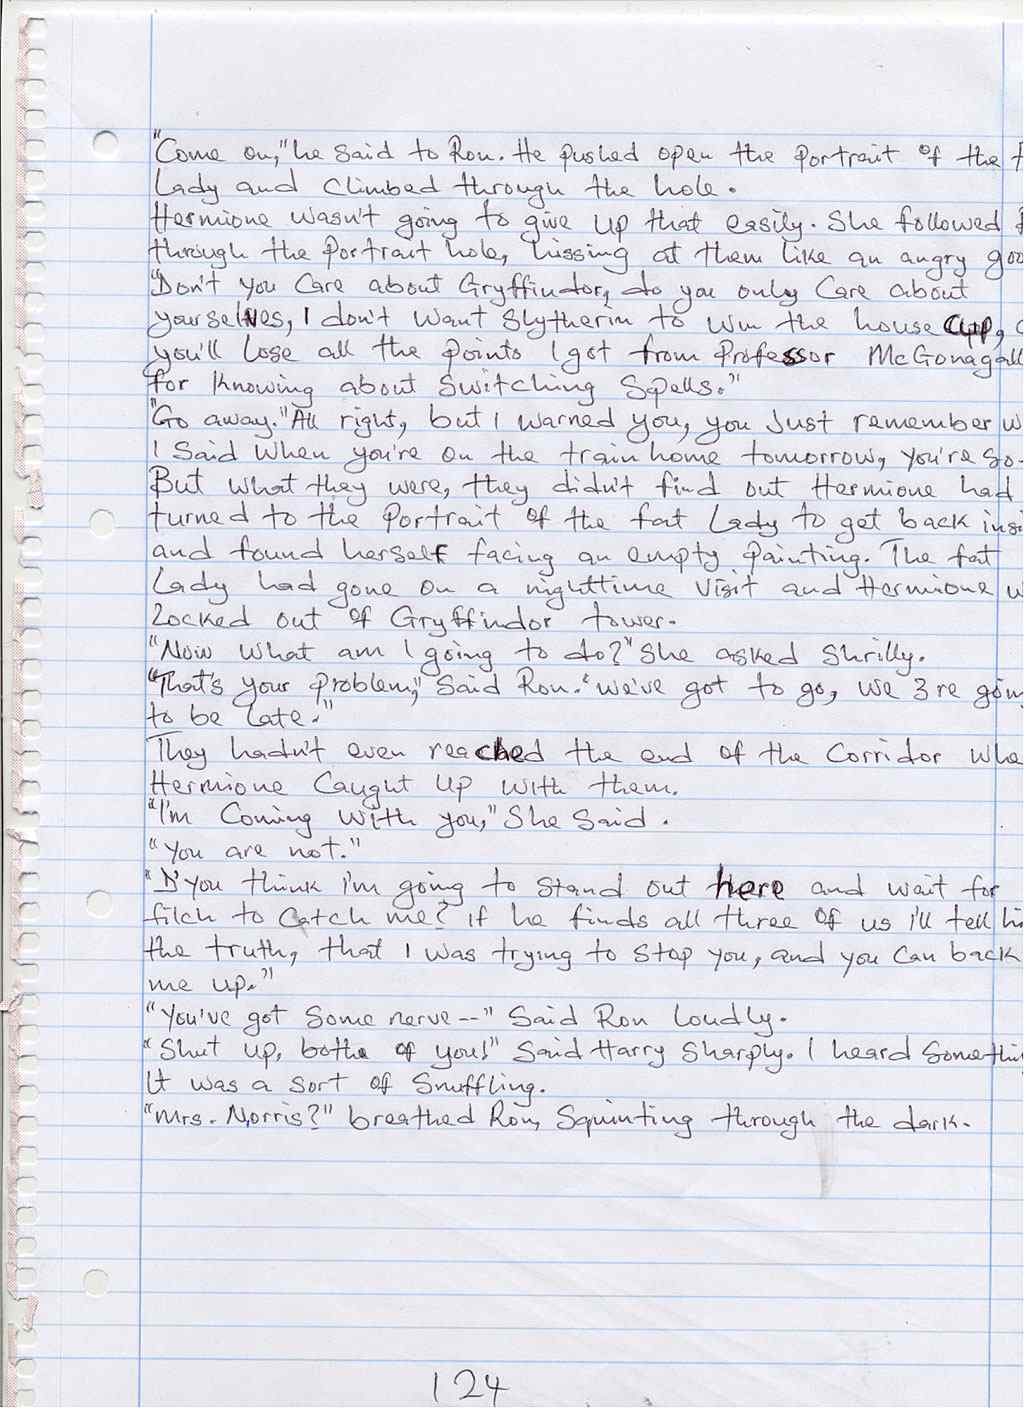 "Come on," he said to Ron. He pushed open the portrait of the
Lady and climbed through the hole.
Hermione wasn't going to give up that easily. She followed
through the portrait hole, hissing at them like an angry
"Don't you care about Gryffindor, do you only care about
yourselves, I don't want Slytherin to win the house cup,
you'll lose all the points I got from Professor McGonagall
for knowing about Switching Spells."
"Go away." "All right, but I warned you, you just remember
I said when you're on the train home tomorrow, you're so-
But what they were, they didn't find out Hermione had
turned to the portrait of the fat Lady to get back
and found herself facing an empty painting. The fat
Lady had gone on a nighttime visit and Hermione
Locked out of Gryffindor tower.
"Now what am I going to do?" she asked shrilly.
"That's your problem," said Ron. "we've got to go, we 3re
to be late."
They hadn't even reached the end of the corridor
Hermione caught up with them.
"I'm coming with you," she said.
"You are not."
"D'you think I'm going to stand out here and wait for
filch to catch me? if he finds all three of us i'll tell
the truth, that I was trying to stop you, and you can back
me up."
"You've got some nerve--" said Ron loudly.
"Shut up, bothe of you!" said Harry sharply. I heard
It was a sort of snuffling.
"Mrs. Norris?" breathed Ron, squinting through the dark.
124